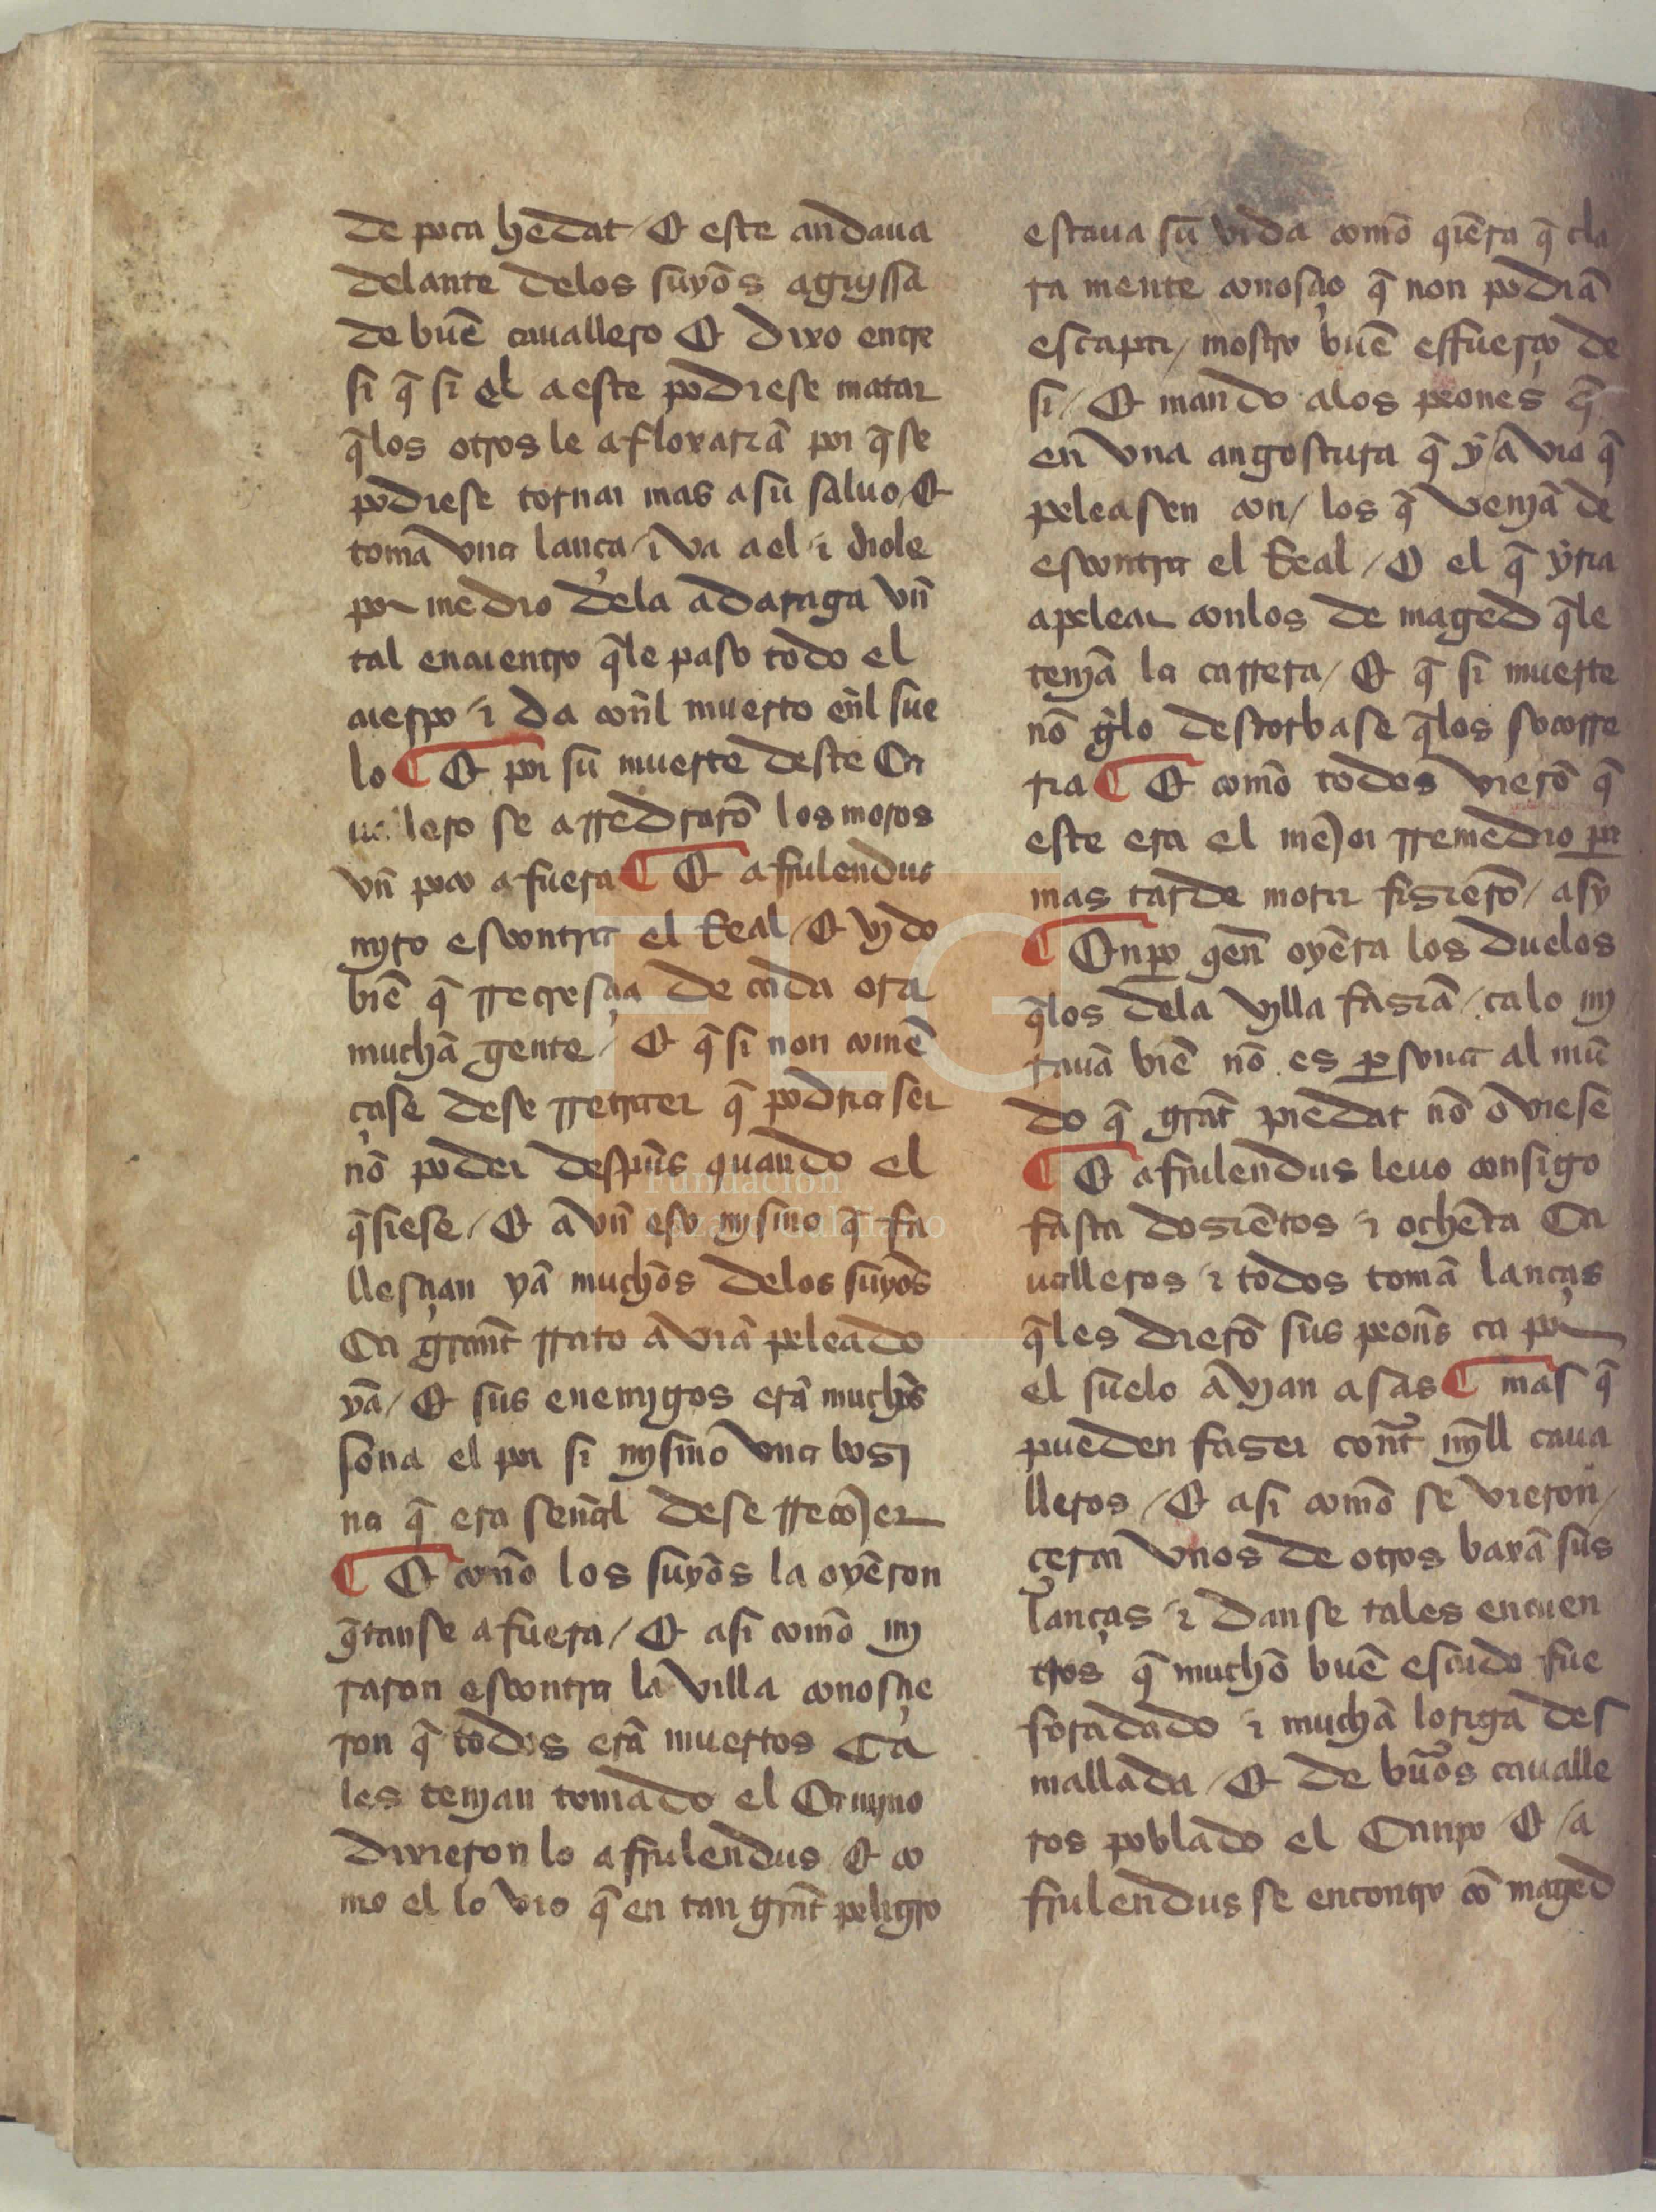 de poca hedat / Et este andaua
delante delos suyos aguyssa
de buẽ cauallero Et dixo entre
si q̃ si el a este podiese matar
q̃ los otros le afloxariã por q̃ se
podiese tornar mas a sũ saluo / Et
tomã vna lança / ⁊ va a el ⁊ diole
por medio dela adaraga vñ
tal encuentro q̃le paso todo el
cuerpo / ⁊ da coñl muerto eñl sue
lo ¶ Et por sũ muerte deste Ca
uallero se arredrarõ los moros
vñ poco afuera ¶ Et affrulendus
myro escontra el Real / Et vydo
biẽ q̃ rrecresçia de cada ora
muchã gente / Et q̃ si non comẽ
çase dese rretraer q̃ podria ser
nõ poder despũs quando el
q̃siese / Et avñ eso mysmo q̃ fa
llesçian yã muchõs delos suyõs
Ca grant̃ rrato aviã peleado
yã / Et sus enemigos erã muchõs
sona el por si mysmõ vna bosi
na q̃ era señal dese rrecõjer
¶ Et comõ los suyõs la oyẽron
q̃tanse afuera / Et asi comõ mi
raron escontra la villa conosçie
ron q̃ todos erã muertos Ca
les tenian tomado el Camyno
dixieron lo affrulendus Et co
mo el lo vio q̃ en tan grãt peligro
estaua sũ vida comõ qiẽra q̃ cla
ra mente conosçio q̃ non podiã
escapar / mostro buẽ effuerço de
si / Et mando alos peones q̃
eñ vna angostura q̃ ỹ avia q̃
peleasen con / los q̃ veniã de
escontra el Real / E el q̃ yria
apelear conlos de maged q̃le
teniã la carrera / Et q̃ si muerte
nõ gelo destorbase q̃los socorre
ria ¶ Et comõ todos vierõ q̃
este era el mẽjor rremedio par
mas tarde morir fisierõ / asy
¶ Enpo qen̄ oyẽra los duelos
q̃los dela vylla fasiã / ca lo mi
rauã biẽ nõ es ꝑsona al mũ
do q̃ grãt piedat nõ oviesẽ
¶ Et affrulendus leuo consigo
fasta dosiẽtos ⁊ ochẽta Ca
ualleros ⁊ todos tomã lanças
q̃les dierõ sũs peonẽs ca por
el suelo avian asas ¶ mas q̃
pueden faser cont̃ myll caua
lleros / Et asi comõ se vieron /
çerca vnos de otros baxã sũs
lanças ⁊ danse tales encuen
tros q̃ muchõ buẽ escudo fue
foradado ⁊ muchã loriga des
mallada / Et de buẽos caualle
ros poblado el Canpo Et / a
ffrulendus se encontro cõ maged